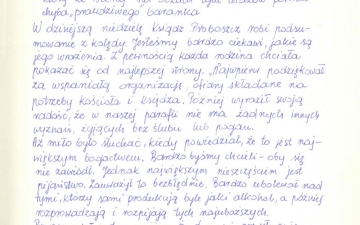 chyba „prawdziwego" baranka
W dzisiejszą niedzielę ksiądz Proboszcz robi podsu-
mowanie z kolędy. Jesteśmy bardzo ciekawi, jakie są
jego wrażenia. Z pewnością każda rodzina chciała
pokazać się od najlepszej strony. Najpierw podziękował
za wspaniałą organizację, ofiary składane na
potrzeby kościoła i księdza. Później wyraził swoją
radość, że w naszej parafii nie ma żadnych innych
wyznań, żyjących bez ślubu lub pogan.
Aż miło było słuchać, kiedy powiedział, że to jest naj-
większym bogactwem. Bardzo byśmy chcieli - oby się
nie zawiódł. Jednak największym nieszczęściem jest
pijaństwo. Zauważył to bezbłędnie. Bardzo ubolewał nad
tymi, którzy sami produkują byle jaki alkohol, a później
rozprowadzają i rozpijają tych najuboższych.